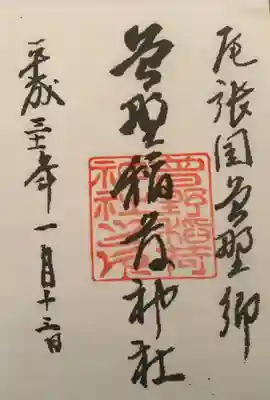 尾張国曽野郷
曽野稲荷神社
曽野稲荷
神社之印
平成三十一年一月十三日